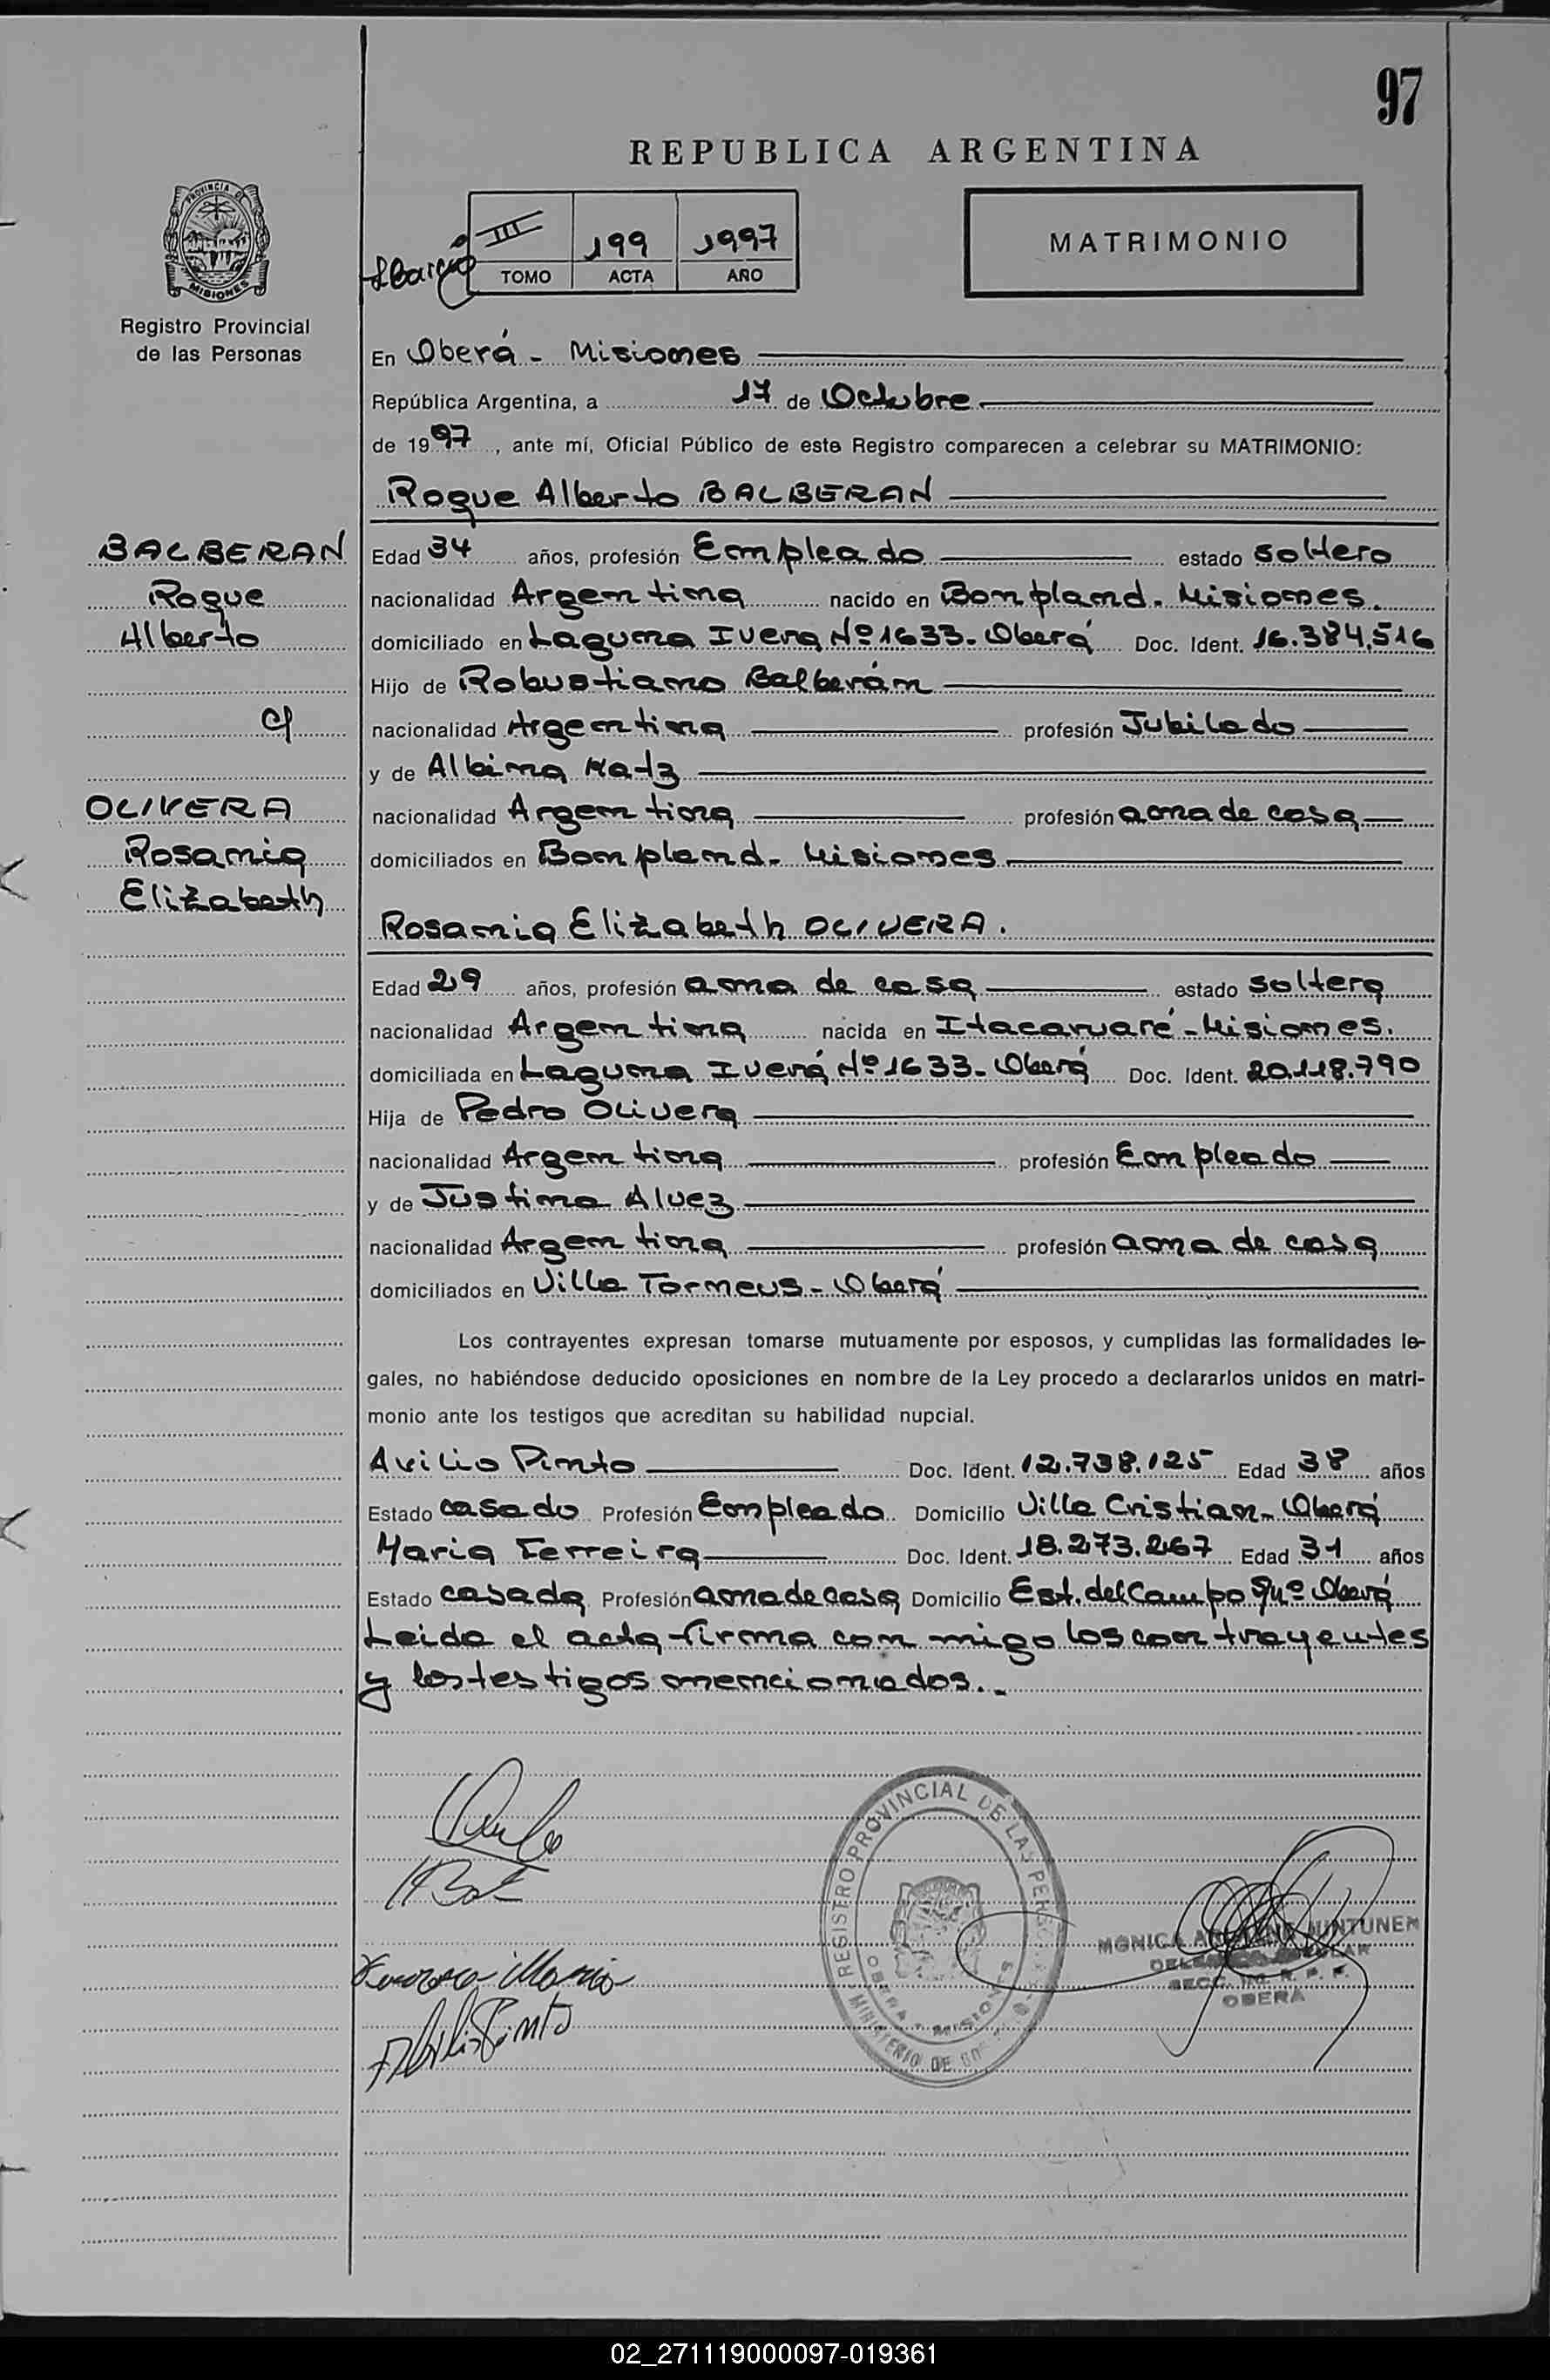 97
REPUBLICA ARGENTINA
PROVINCIA DE
MISIONES
Registro Provincial
de las Personas
III 199 1997
TOMO ACTA AÑO
MATRIMONIO
En Oberá - Misiones
República Argentina, a 17 de Octubre
de 1997, ante mí, Oficial Público de este Registro comparecen a celebrar su MATRIMONIO:
Roque Alberto BALBERAN
BALBERAN
Roque
Alberto
c/
OLIVERA
Rosania
Elizabeth
Edad 34 años, profesión Empleado estado soltero
nacionalidad Argentina nacido en Bonpland. Misiones.
domiciliado en Laguna Iverá Nº 1633- Oberá Doc. Ident. 16.384.516
Hijo de Robustiano Balberán
nacionalidad Argentina profesión Jubilado
y de Albina Katz
nacionalidad Argentina profesión ama de casa
domiciliados en Bonpland- Misiones
Rosania Elizabeth OLIVERA.
Edad 29 años, profesión ama de casa estado soltera
nacionalidad Argentina nacida en Itacaruaré-Misiones.
domiciliada en Laguna Iverá Nº 1633- Oberá Doc. Ident. 20.118.790
Hija de Pedro Olivera
nacionalidad Argentina profesión Empleado
y de Justina Alvez
nacionalidad Argentina profesión ama de casa
domiciliados en Villa Torneus- Oberá
Los contrayentes expresan tomarse mutuamente por esposos, y cumplidas las formalidades le-
gales, no habiéndose deducido oposiciones en nombre de la Ley procedo a declararlos unidos en matri-
monio ante los testigos que acreditan su habilidad nupcial.
Avilio Pinto Doc. Ident. 12.738.125 Edad 38 años
Estado casado Profesión Empleado Domicilio Villa Cristian- Oberá
Maria Ferreira Doc. Ident. 18.273.267 Edad 31 años
Estado casada Profesión ama de casa Domicilio Est. del Campo Oberá
Leida el acta firma con migo los contrayentes
y los testigos mencionados.-
REGISTRO PROVINCIAL DE LAS PERS
OBERA - MISIONES
MINISTERIO DE GO
Maria
Pinto
MONICA
OBERA
02_271119000097-019361